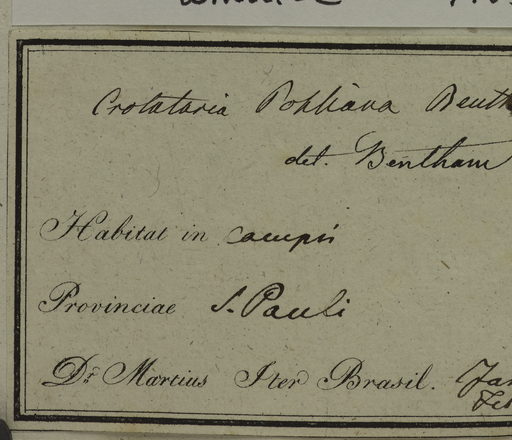 Crotalaria Pohliana Benth
det. Bentham
Habitat in campis
Provinciae S. Pauli
Dr. Martius Iter Brasil. Jan
Feb